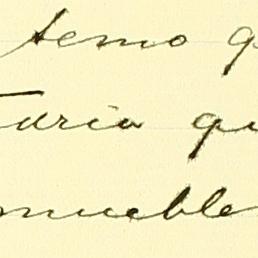 temo q
taria qu
muebles